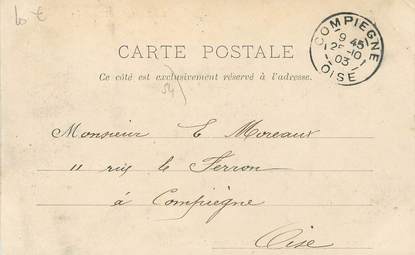 60 €
COMPIEGNE
9 45
25 -10
03
OISE
CARTE POSTALE
Ce côté est exclusivement réservé à l'adresse.
Monsieur E Moreaux
11 rue le Ferron
à Compiègne
Oise